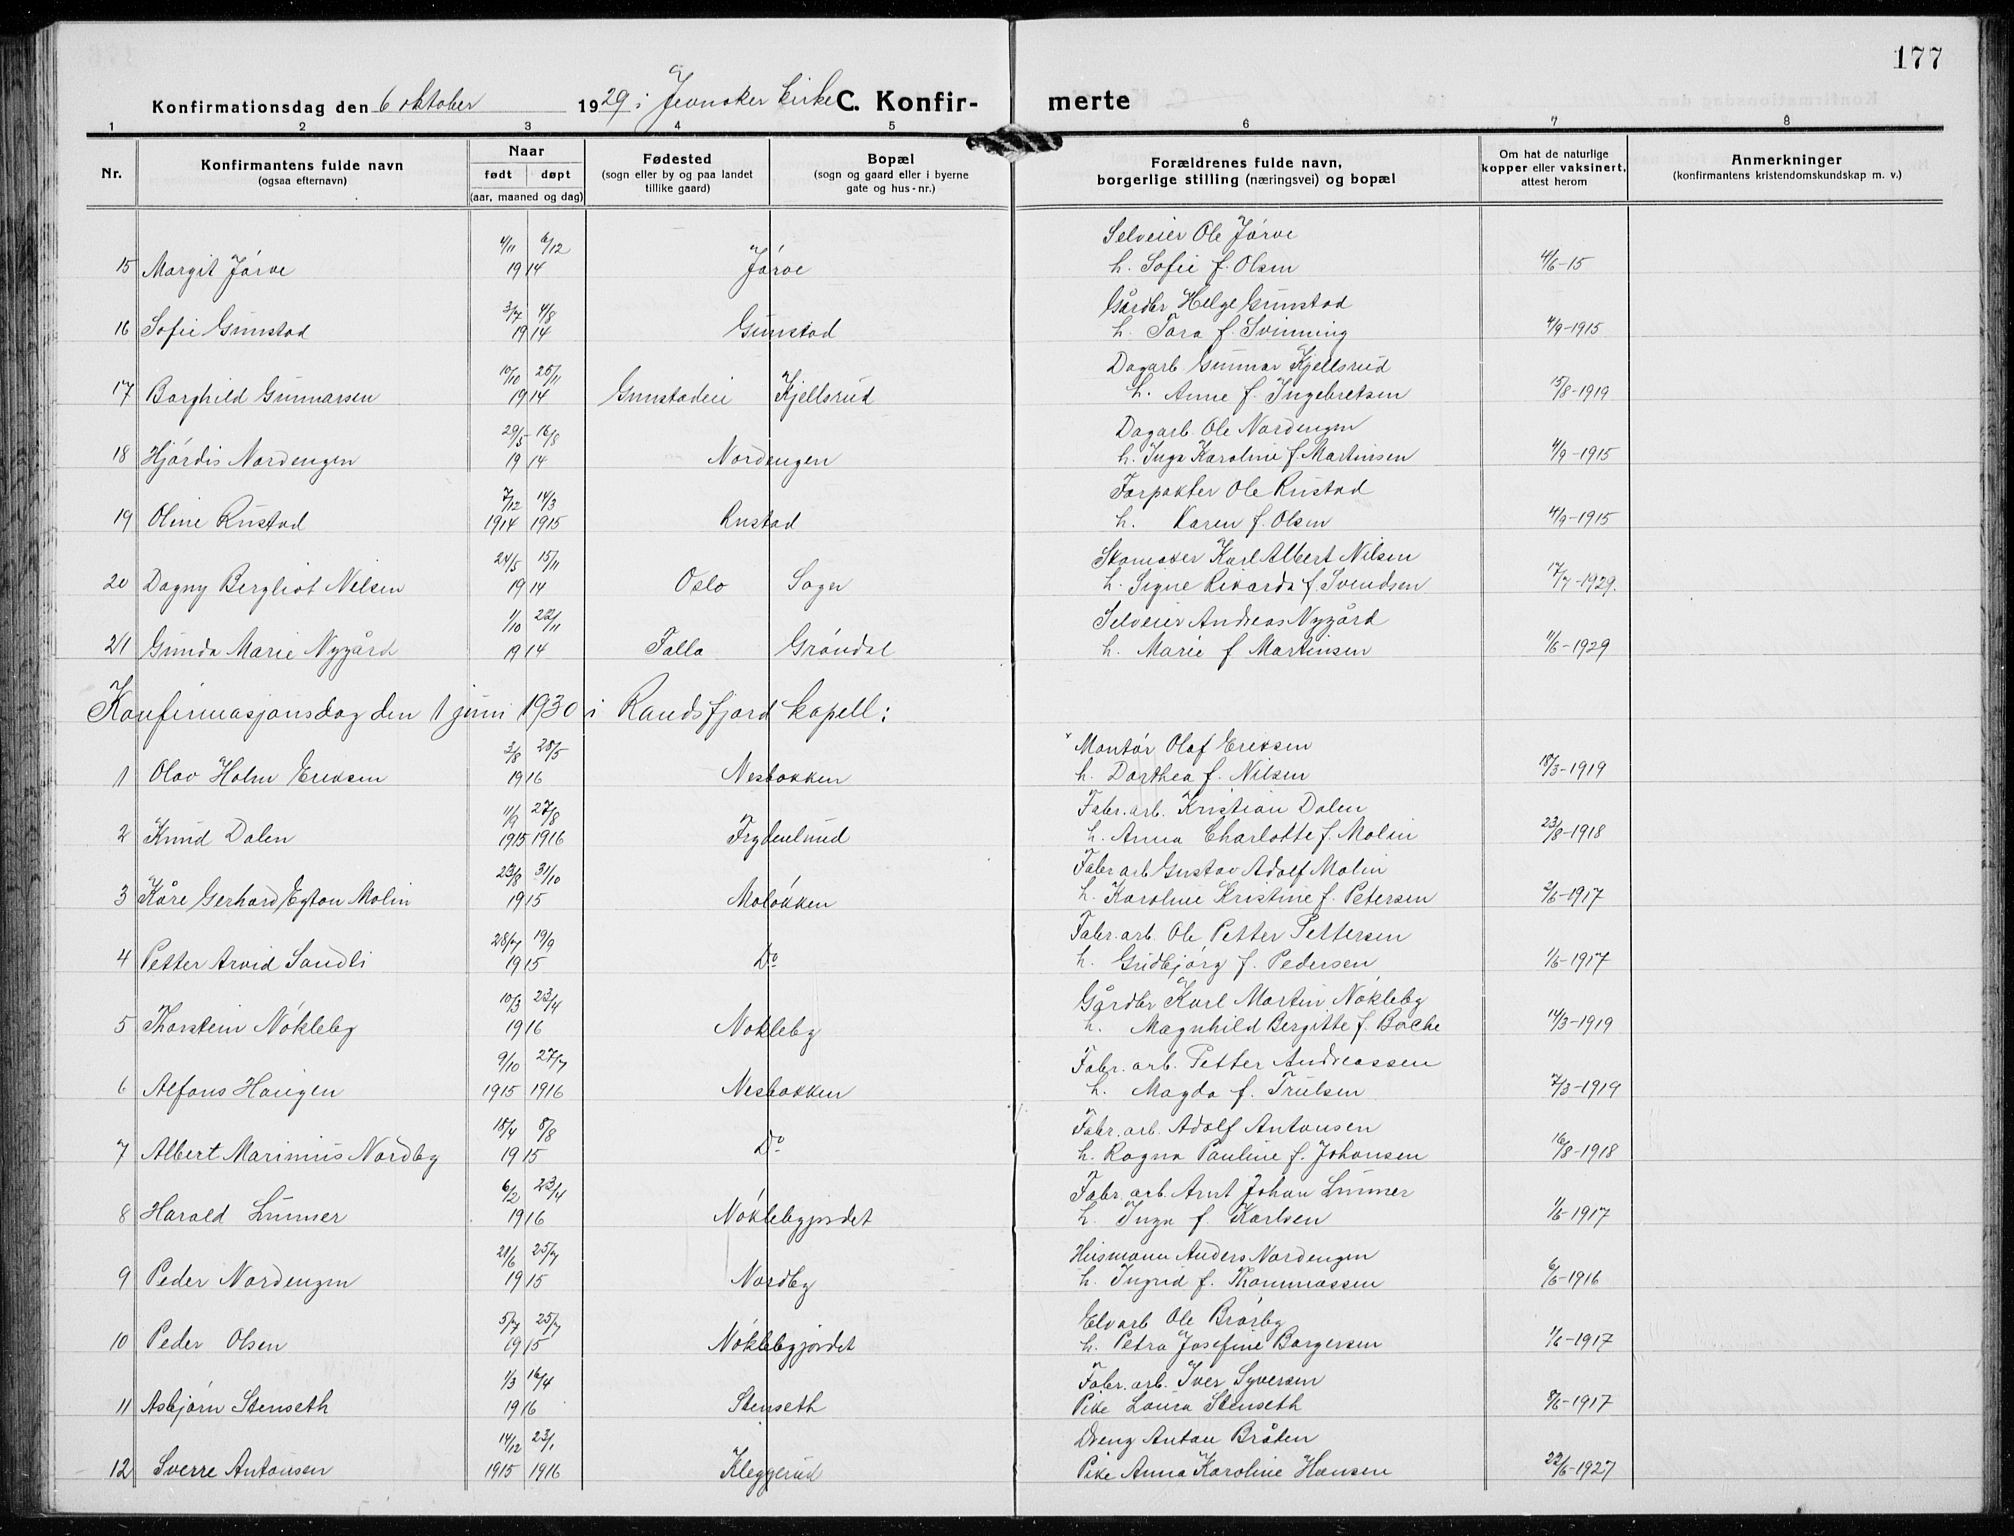 177
Konfirmationsdag den 6 oktober 1929 i Jevnaker kirke C. Konfir- merte
1 2 3 4 5 6 7 8
Nr. Konfirmantens fulde navn (ogsaa efternavn) Naar født døpt (aar, maaned og dag) Fødested (sogn eller by og paa landet tillike gaard) Bopæl (sogn og gaard eller i byerne gate og hus-nr.) Forældrenes fulde navn, borgerlige stilling (næringsvei) og bopæl Om hat de naturlige kopper eller vaksinert, attest herom Anmerkninger (konfirmantens kristendomskundskap m. v.)
4/11 6/12 Selveier Ole Jörve
15 Margit Jörve 1914 Jörve h. Sofie f. Olsen 4/6-15
3/7 4/8 Gårdbr Helge Gunstad
16 Sofie Gunstad 1914 Gunstad h. Tora f. Svinning 4/9-1915
10/10 25/11 Dagarb Gunnar Kjellsrud
17 Borghild Gunnarsen 1914 Gunstadeie Kjellsrud h. Anne f. Ingebretsen 15/8-1919
29/5 16/8 Dagarb. Ole Nordengen
18 Hjördis Nordengen 1914 Nordengen h. Inga Karoline f Martinsen 4/9-1915
7/12 14/3 Forpakter Ole Rustad
19 Oline Rustad 1914 1915 Rustad h. Karen f. Olsen 4/9-1915
24/5 15/11 Skomaker Karl Albert Nilsen
20 Dagny Bergliot Nilsen 1914 Oslo Sager h. Signe Rikarda f. Svendsen 17/7-1929.
1/10 22/11 Selveier Andreas Nygård
21 Gunda Marie Nygård 1914 Falla Gröndal h. Marie f Martinsen 11/6-1929
Konfirmasjonsdag den 1 juni 1930 i Randsfjord kapell:
3/8 28/5 Montör Olaf Eriksen
1 Olav Holm Eriksen 1916 Nesbakken h. Dorthea f. Nilsen 18/3-1919
11/9 27/8 Fabr. arb. Kristian Dalen
2 Knud Dalen 1915 1916 Frydenlund h. Anna Charlotte f. Molin 23/8-1918
23/8 31/10 Fabr arb Gustav Adolf Molin
3 Kåre Gerhard Egton Molin 1915 Molökken h. Karoline Kristine f. Petersen 2/6-1917
28/7 19/9 Fabr. arb. Ole Petter Pettersen
4 Petter Arvid Sandli 1915 Do h. Gudbjörg f. Pedersen 1/6-1917
10/3 23/4 Gårdbr Karl Martin Nökleby
5 Thorstein Nökleby 1916 Nökleby h. Magnhild Bergitte f. Bache 14/3-1919
9/10 27/7 Fabr. arb. Petter Andreassen
6 Alfons Haugen 1915 1916 Nesbakken h. Magda f. Trulsen 7/3-1919
18/4 8/8 Fabr. arb. Adolf Antonsen
7 Albert Marinius Nordby 1915 Do h. Ragna Pauline f. Johansen 16/8-1918
6/2 23/4 Fabr. arb. Arnt Johan Lunner
8 Harald Lunner 1916 Nöklebyjordet h. Inga f. Karlsen 1/6-1917
21/6 25/7 Husmann Anders Nordengen
9 Peder Nordengen 1915 Nordby h. Ingrid f. Thommassen 6/6-1916
5/7 25/7 Elvarb Ole Brörby
10 Peder Olsen 1915 Nöklebyjordet h. Petra Josefine Borgersen 1/6-1917
1/3 16/4 Fabr. arb. Iver Syversen
11 Asbjörn Stenseth 1916 Stenseth Pike Laura Stenseth 8/6-1917
14/12 23/1 Dreng Anton Bråten
12 Sverre Antonsen 1915 1916 Kleggerud Pike Anna Karoline Hansen 22/6-1927